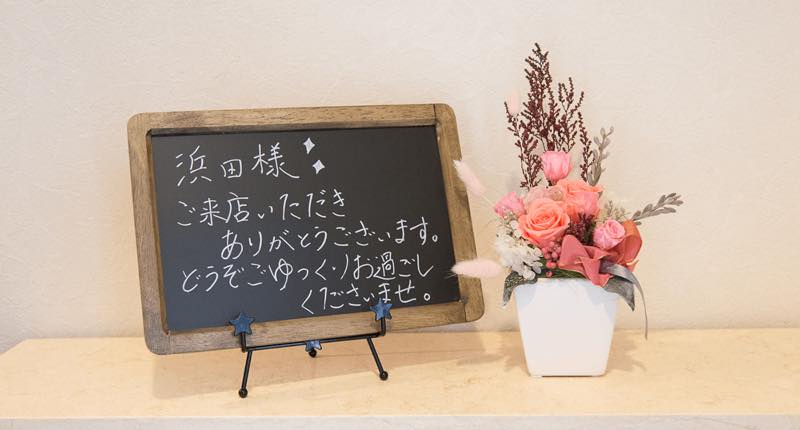 浜田様
ご来店いただき
ありがとうございます。
どうぞごゆっくりお過ごし
くださいませ。